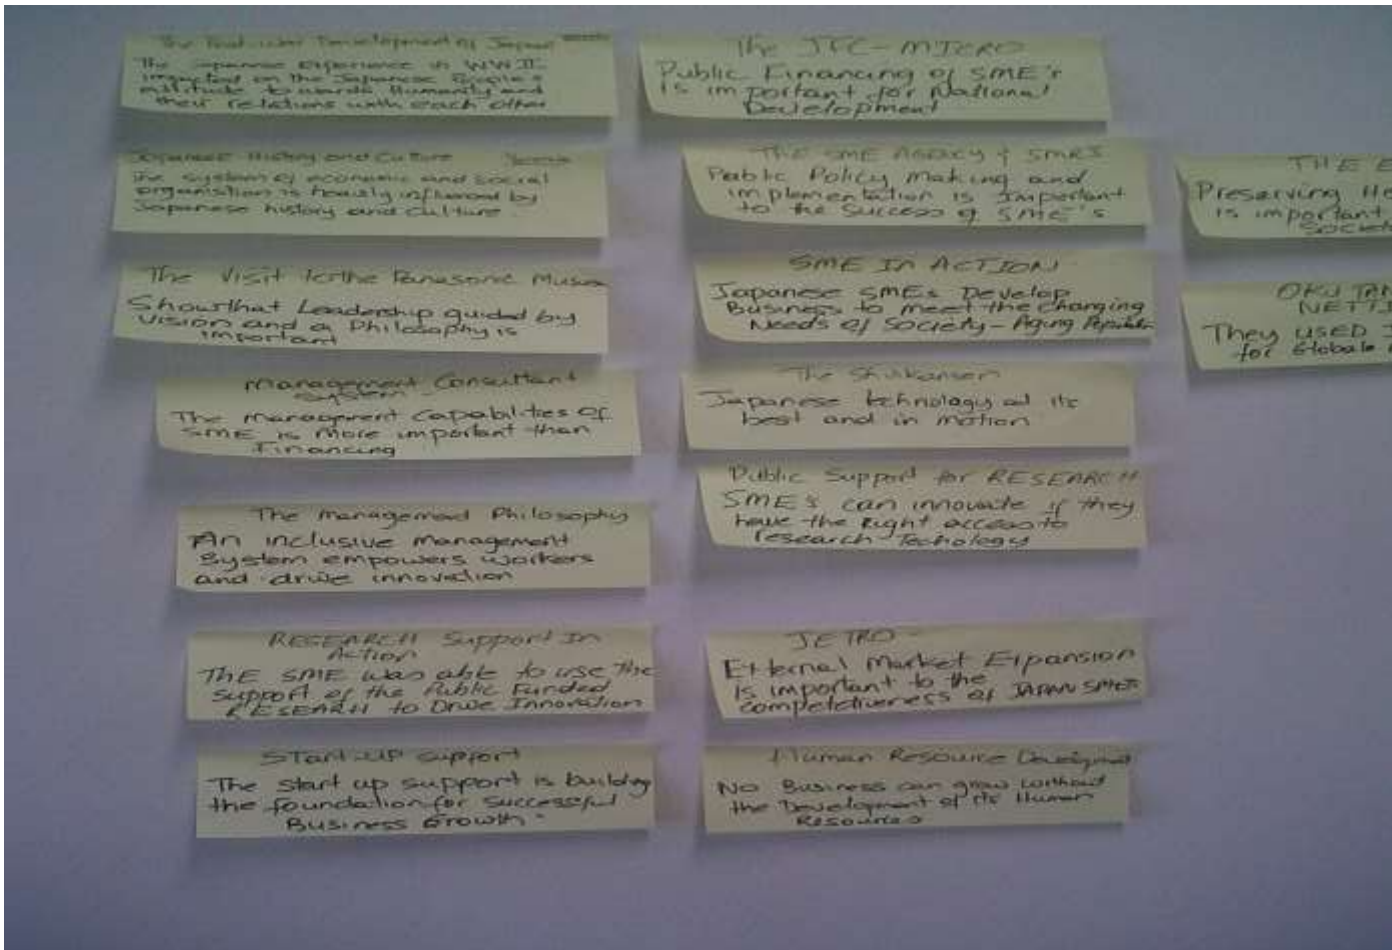 The Post-war Development of Japan
The Japanese Experience in WWII
impacted on the Japanese People's
attitude towards Humanity and
their relations with each other
Japanese History and Culture
The system of economic and social
organistion is heavily influenced by
Japanese history and culture
The Visit to the Panasonic Museu
Show that Leadership guided by
Vision and a Philosophy is
important
Management Consultant
System -
The management Capabilities of
SME is more important than
Financing
The management Philosophy
An inclusive management
System empowers workers
and drive innovation
RESEARCH Support In
Action
THE SME was able to use the
support of the Public Funded
RESEARH to Drive Innovation
START-UP support
The start up support is building
the foundation for successful
Business Growth -
The JFC-MICRO
Public Financing of SME's
is important for National
Development
THE SME AGENCY & SMRJ
Public Policy Making and
implementation is Important
to the Success of SME's
SME IN ACTION
Japanese SMEs Develop
Business to meet the changing
Needs of Society - Aging Population
The Shikansen
Japanese technology at its
best and in motion
Public Support for RESEARCH
SME's can innovate if they
have the Right access to
research Techology
JETRO -
External Market Expansion
is important to the
competitiveness of JAPAN SMEs
Human Resource Development
No Business can grow without
the Development of its Human
Resources
THE E
Preserving H
is important
Societ
OKU TA
NETT
They USED I
for Globale